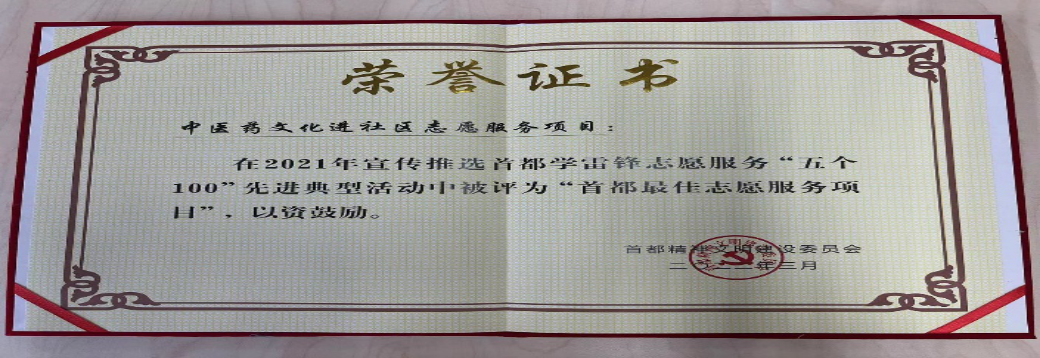 荣誉证书
中医药文化进社区志愿服务项目：
在2021年宣传推选首都学雷锋志愿服务“五个
100”先进典型活动中被评为“首都最佳志愿服务项
目”，以资鼓励。
首都精神文明建设委员会
二〇二二年三月